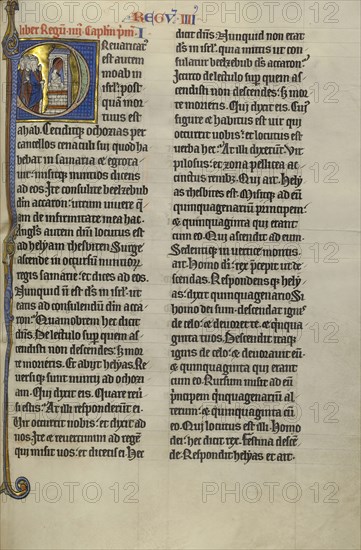 REGV̄ IIII
liber Regū. iiij. Caplm pm. I
Preuaricat9
est autem
moab in
isrl' post
quā mor
tuus est
ahab. Ceciditq; ochozias per
cancellos cenaculi sui quod ha
bebat in samaria & egrota
uit. misitq; nuncios dicens
ad eos. Ite consulite beelzebub
dm accaron. utrum uiuere q̄
am de infirmitate mea hac.
Angls autem dni locutus est
ad helyam thesbiten. Surge
ascende in occursum nuncior̄
regis samarie. et dices ad eos.
Nunquid n̄ est ds in isrl'. ut
eatis ad consulendū dm acca
ron. Quamobrem hec dicit
dns. De lectulo sup̄ quem as
cendisti non descendes. sȝ mor
te morieris. Et abijt helyas. Re
uersiq; sunt nuncij ad ochozi
am. Qui dixit eis. Quare reu'
si estis. At illi responderūt ei.
Vir occurrit nobis et dixit ad
nos. Ite & reuertimini ad regē
qui misit uos. et dicetis ei. Hec
dicit dns. Nunquid non erat
ds in isrl'. quia mittis ut con
sulatur beelzebub ds accaron.
Idcirco de lectulo sup̄ quem as
cendisti non descendes. sȝ mor
te morieris. Qui dixit eis. Cui9
figure & habitus est uir qui
occurrit uobis. et locutus est
uerba hec. At illi dixerūt. Vir
pilosus. et zona pellicea ac
cinctus renibȝ. Qui ait. Hely
as thesbites est. Misitq; ad eū
quinquagenariū principem
& quinquaginta qui erant
cum eo. Qui ascendit ad eum.
Sedentiq; in uertice montis
ait. Homo di. rex p̄cepit ut de
scendas. Respondensq; hely
as. dixit quinquagenario. Si
homo dei sum. descendat ignis
de celo. & deuoret te. & q̄nqua
ginta tuos. Descendit itaq;
ignis de celo. & deuorauit eū
& quinquaginta qui erant
cum eo. Rursum misit ad eū
p̄ncipem q̄nquagenariū al
terum. & quinquaginta cū
eo. Qui locutus est illi. Homo
dei. hec dicit rex. Festina descē
de. Respondit helyas et ait.